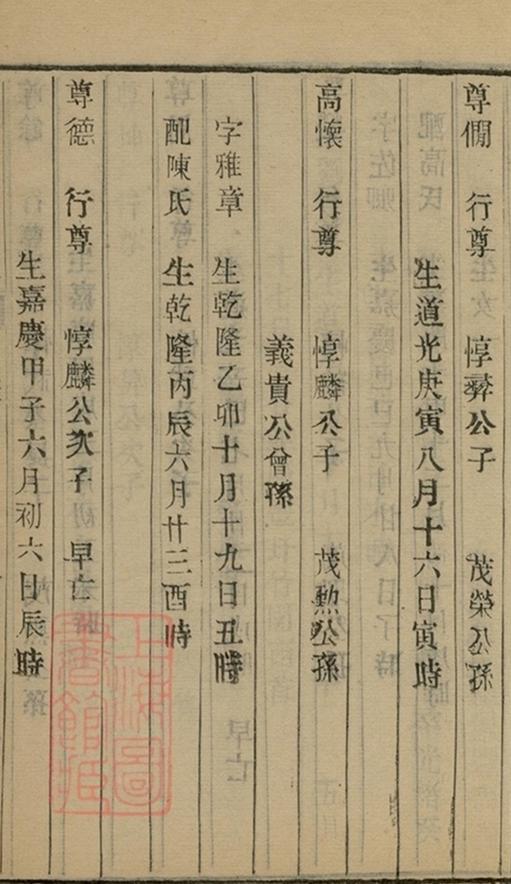 尊僩 行尊 惇彝公子 茂榮公孫
生道光庚寅八月十六日寅時
高懷 行尊 惇麟公子 茂勲公孫
義貴公曾孫
字雅章 生乾隆乙卯十月十九日丑時
配陳氏 生乾隆丙辰六月廿三酉時
尊德 行尊 惇麟公次子 早亡
生嘉慶甲子六月初六日辰時
上海圖書館藏